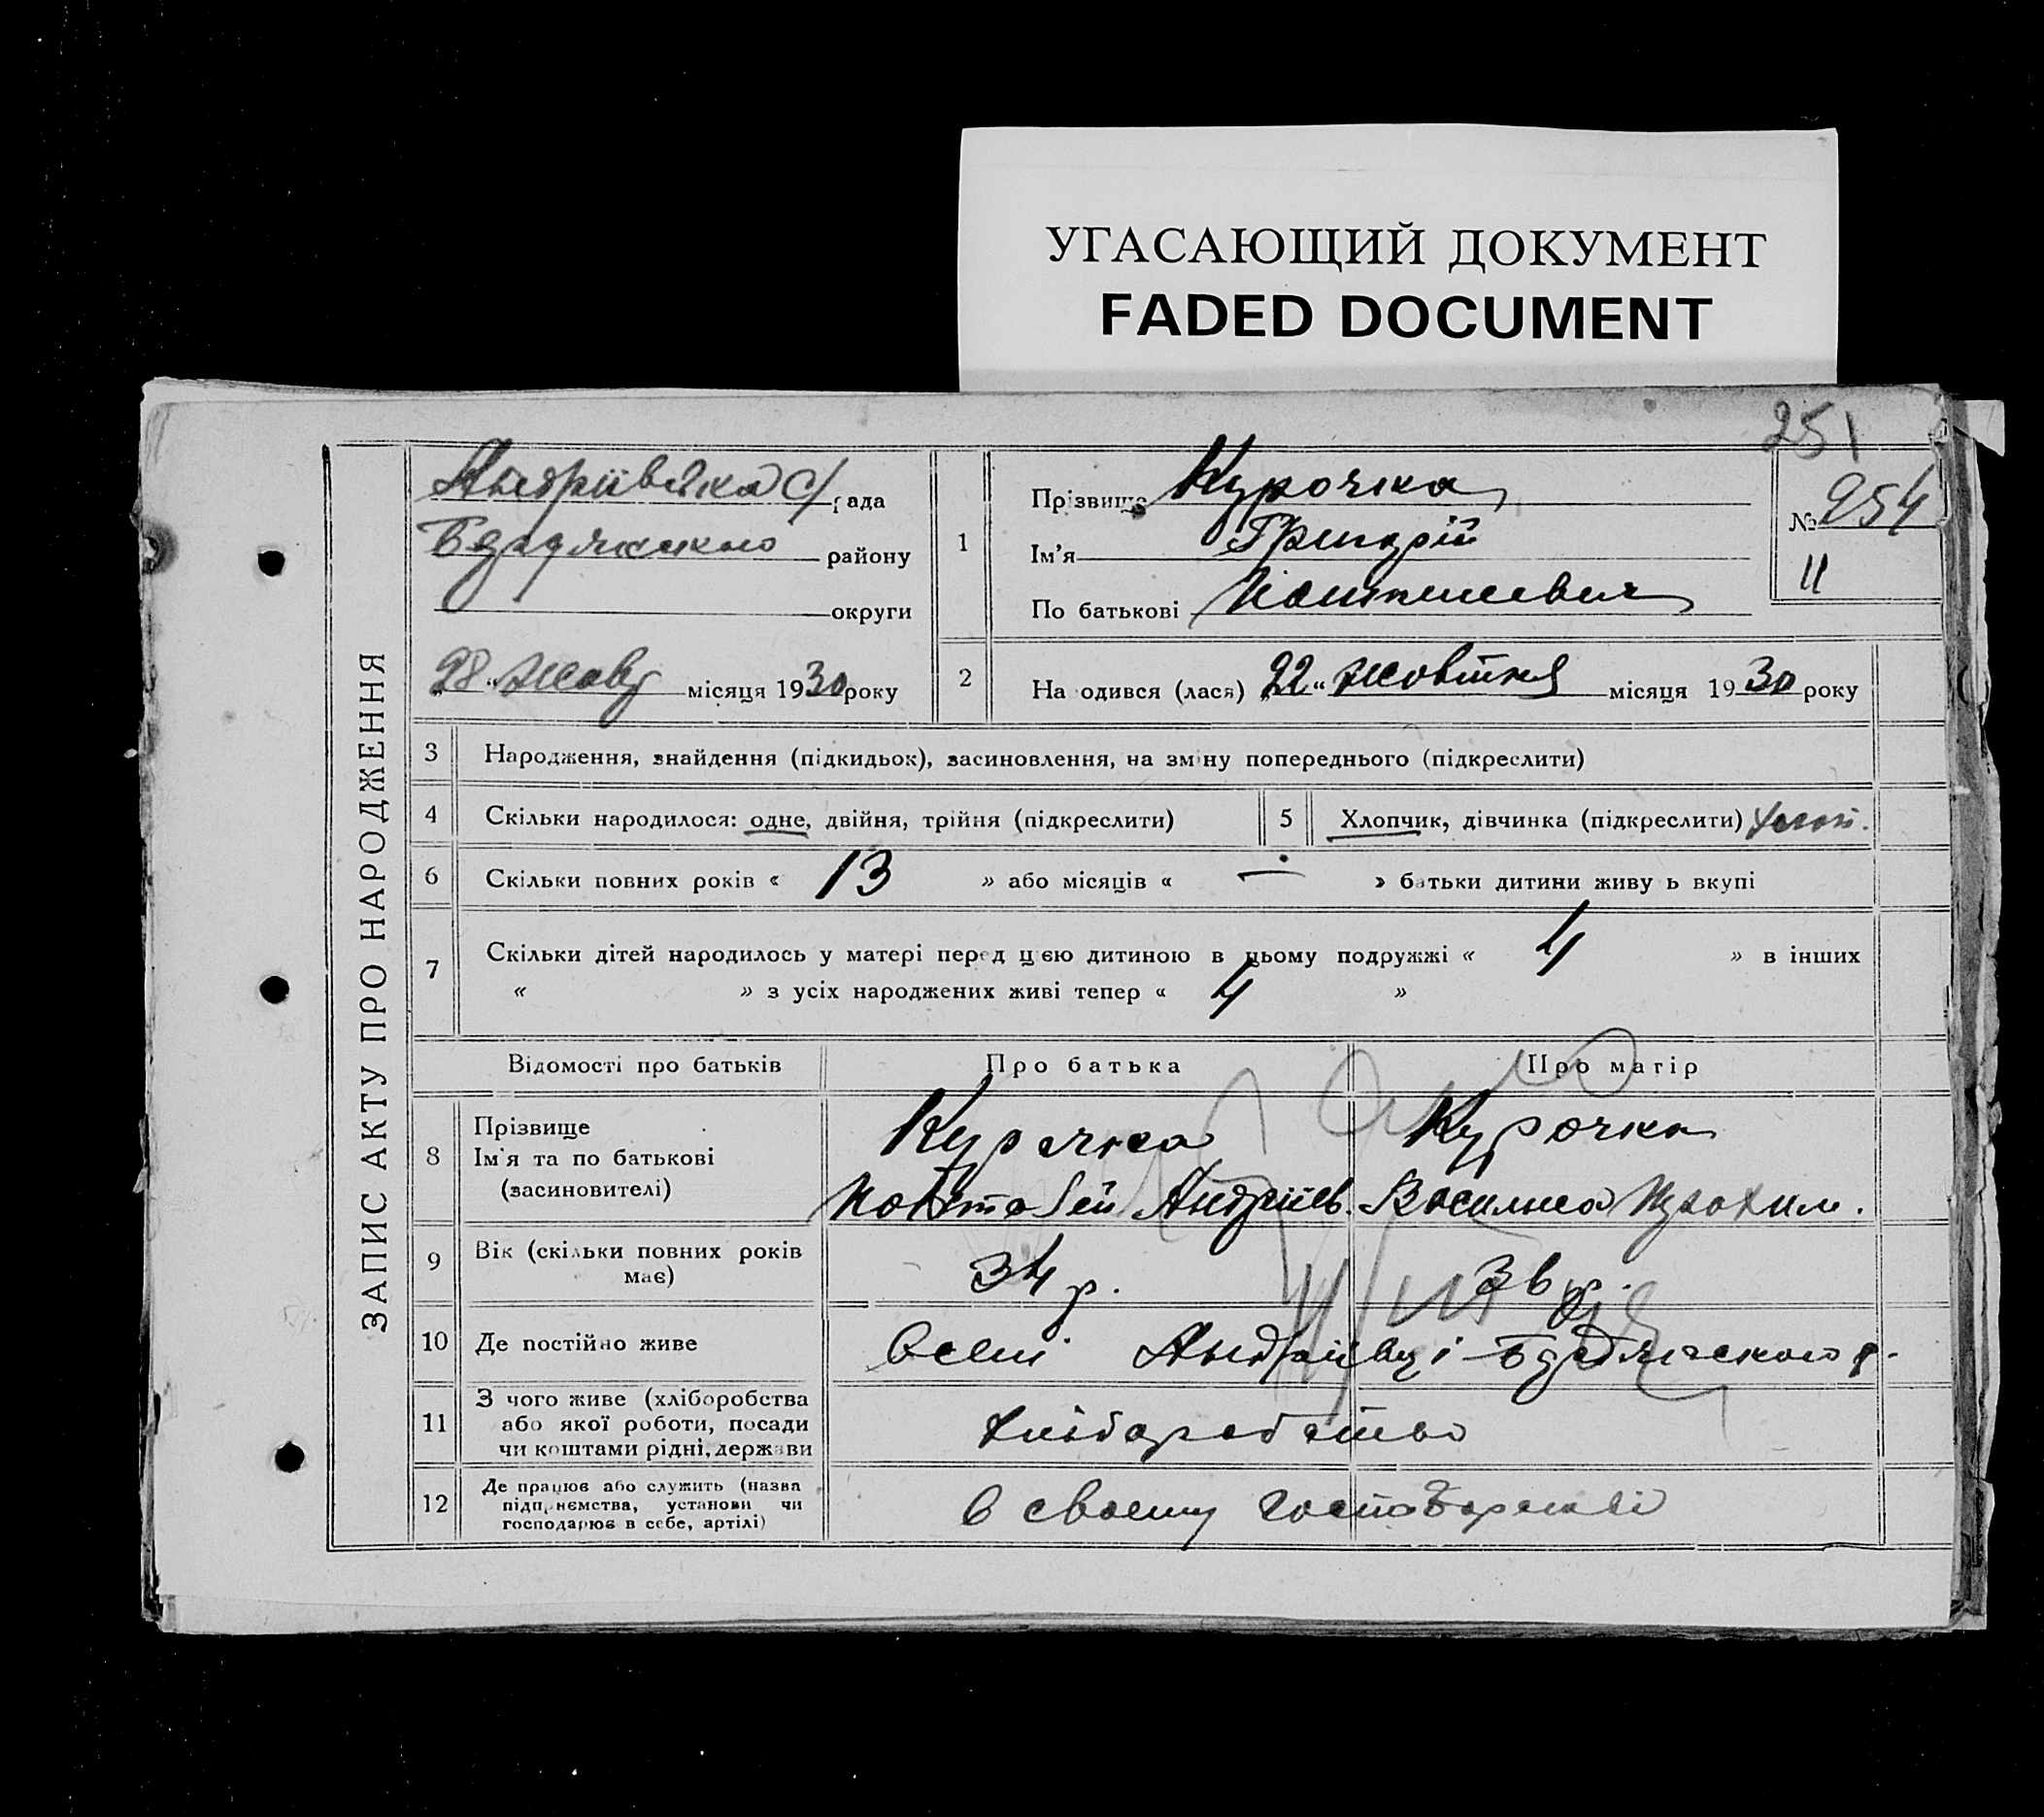 УГАСАЮЩИЙ ДОКУМЕНТ
FADED DOCUMENT
251
ЗАПИС АКТУ ПРО НАРОДЖЕННЯ
Андріївська с/рада
району
округи
28 „ Жовт місяця 1930 року
1
Прізвище Курочка
Ім'я Григорій
По батькові
№ 254
11
2 Народився (лася) „22“ жовтня місяця 1930 року
3 Народження, знайдення (підкидьок), засиновлення, на зміну попереднього (підкреслити)
4 Скільки народилося: одне, двійня, трійня (підкреслити) 5 Хлопчик, дівчинка (підкреслити)
6 Скільки повних років « 13 » або місяців « — » батьки дитини живуть вкупі
7 Скільки дітей народилось у матері перед цією дитиною в цьому подружжі « 4 » в інших
« » з усіх народжених живі тепер « 4 »
Відомості про батьків Про батька Про матір
8 Прізвище Ім'я та по батькові (засиновителі) Курочка Курочка
Андріїв. Василиса
9 Вік (скільки повних років має) 34 р. 36 р.
10 Де постійно живе в селі Андріївці р.
11 З чого живе (хліборобства або якої роботи, посади чи коштами рідні, держави хліборобство
12 Де працює або служить (назва підприємства, установи чи господарює в себе, артілі) в своєму господарстві